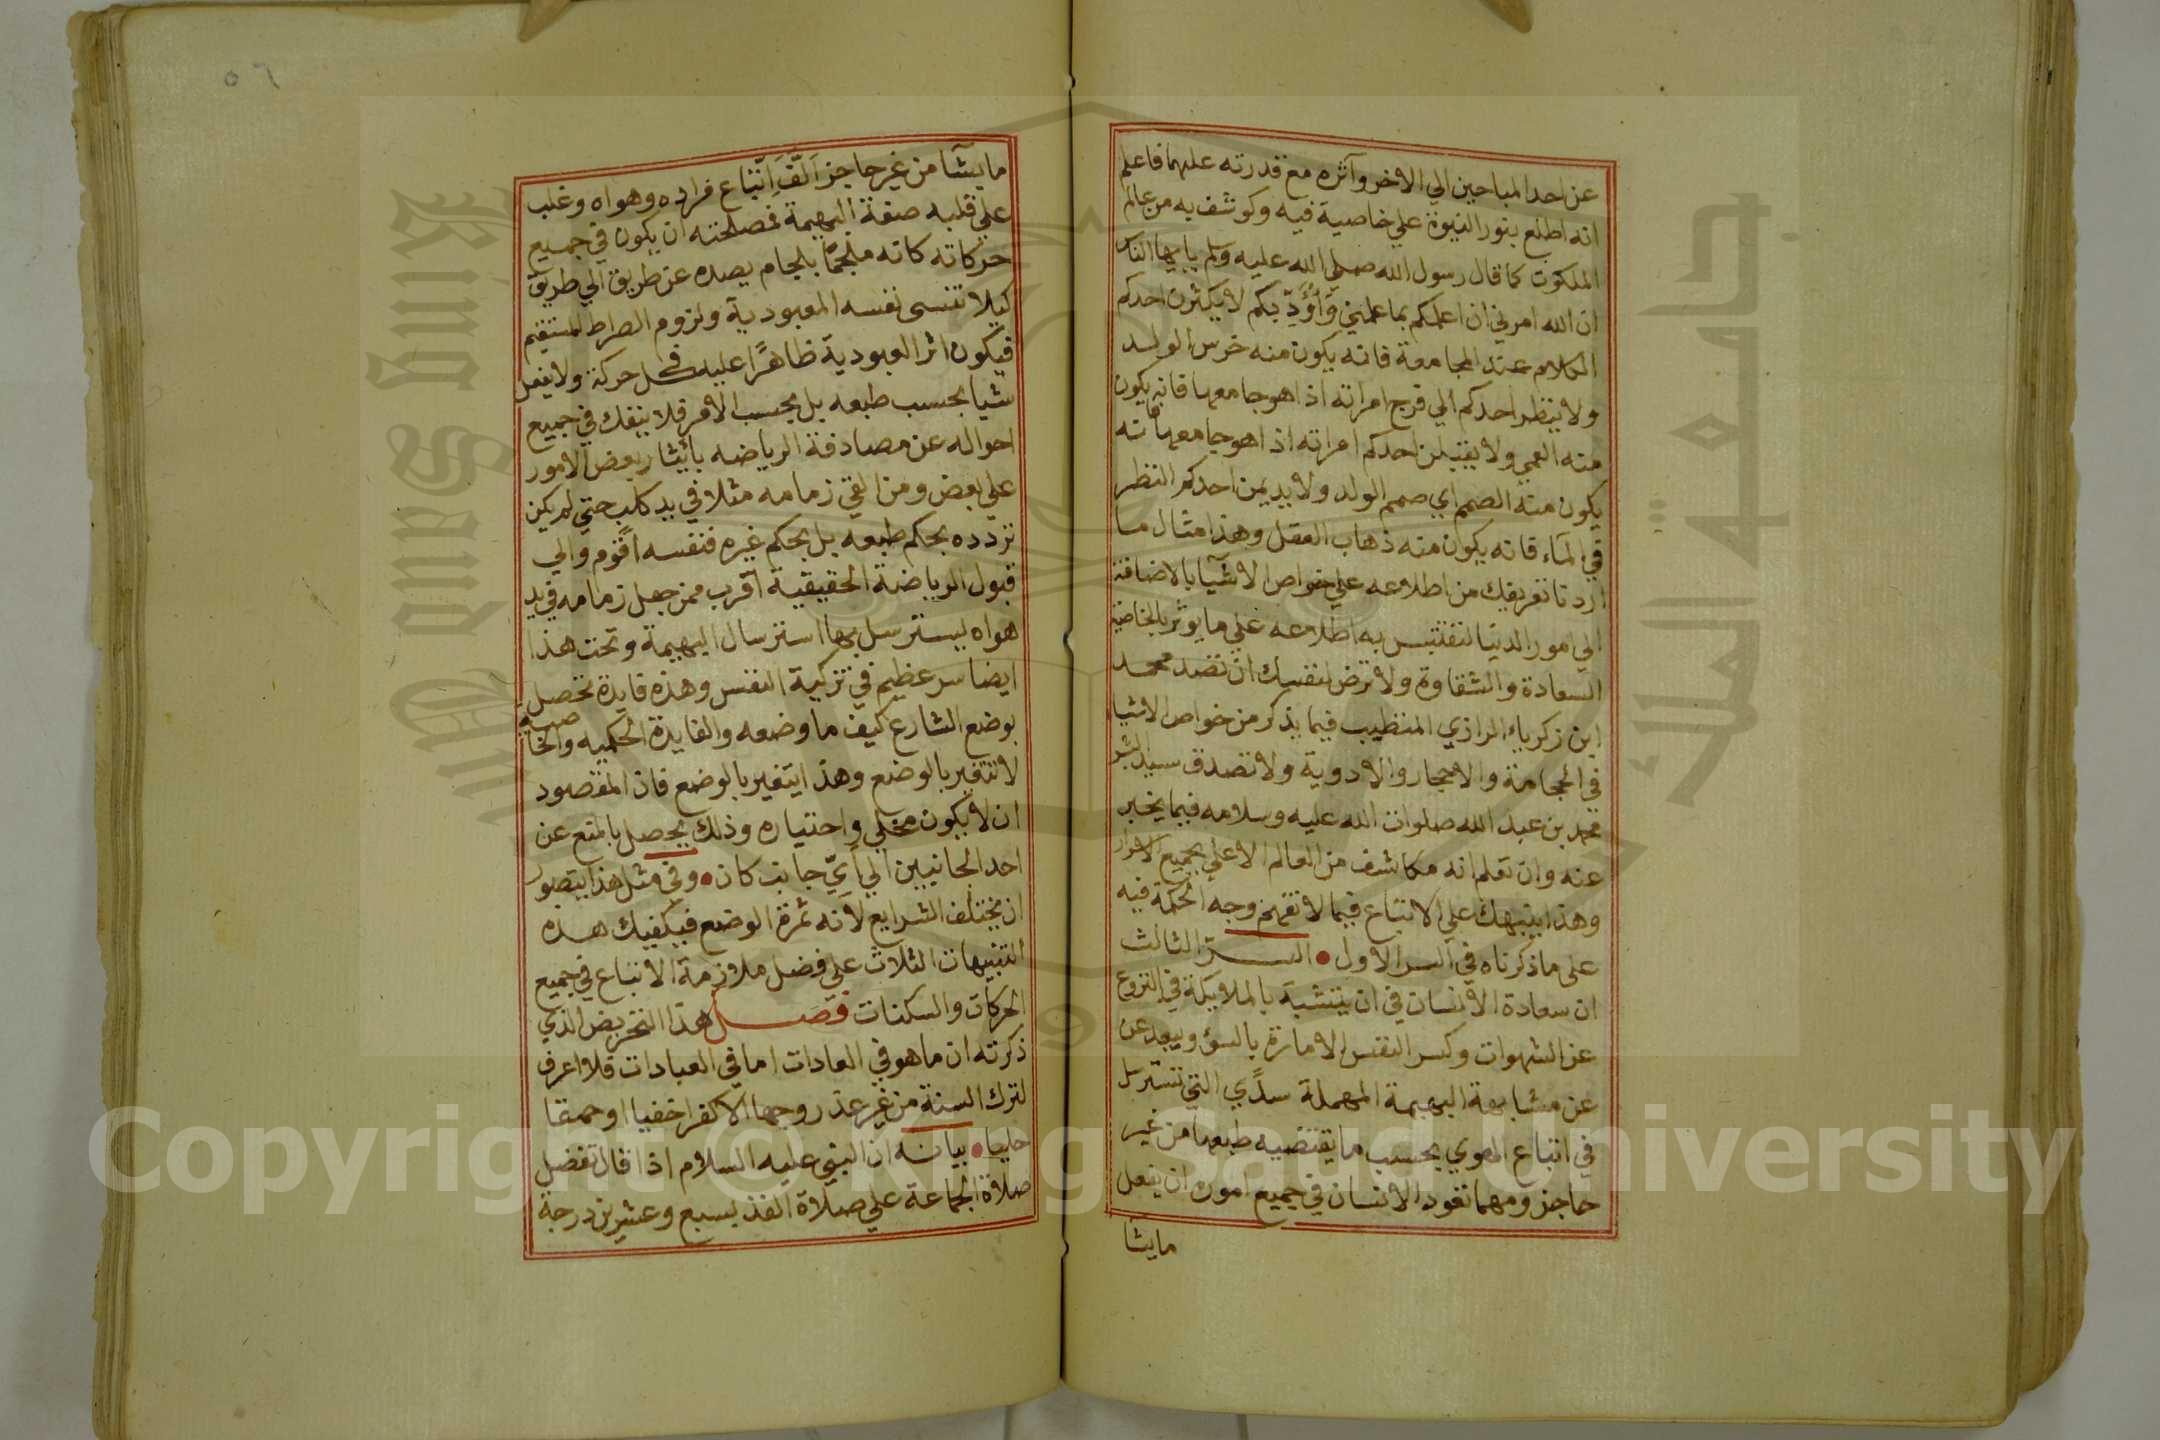 عن احد المباحين الي الاخر وآثره مع قدرته عليهما فاعلم
انه اطلع بنور النبوة علي خاصية فيه وكوشف به من عالم
الملكوت كما قال رسول الله صلي الله عليه وسلم يا ايها الناس
ان الله امرني ان اعلمكم بما علمني وَأُؤَدِّبكم لا يكثرن احدكم
الكلام عند المجامعة فانه يكون منه خرس الولد
ولا ينظر احدكم الي فرج امراته اذا هو جامعها فانه يكون
منه العمي ولا يقبلن احدكم امراته اذا هو جامعها فانه
يكون منه الصمم اي صمم الولد ولا يديمن احدكم النظر
في الماء فانه يكون منه ذهاب العقل وهذا مثال ما
اردنا تعريفك من اطلاعه علي خواص الاشيآ بالاضافة
الي امور الدنيا لتقتبس به اطلاعه علي ما يوثر بالخاصية
السعادة والشقاوة ولا ترض لنفسك ان تصدق محمد
ابن زكرياء الرازي المتطبب فيما يذكر من خواص الاشيا
في الحجامة والاحجار والادوية ولا تصدق سيد البشر
محمد بن عبد الله صلوات الله عليه وسلامه فيما يخبر
عنه وان تعلم انه مكاشف من العالم الاعلي بجميع الاسرار
وهذا ينبهك علي الاتباع فيما لا تفهم وجه الحكمة فيه
على ما ذكرناه في السر الاول • الســـر الثالث
ان سعادة الانسان في ان يتشبه بالملايكة في النزوع
عن الشهوات وكسر النفس الامارة بالسؤ ويبعد عن
عن مشابهة البهيمة المهملة سدًي التي تسترسل
في اتباع الهوي بحسب ما يقتضيه طبعها من غير
حاجز ومهما تعود الانسان في جميع اموره ان يفعل
مايشا
٥٦
ما يشآ من غير حاجز اَلَّفَ اتّباع مراده وهواه وغلب
علي قلبه صفة البهيمة فمصلحته ان يكون في جميع
حركاته كانه ملجمًا بلجام يصده عن طريق الي طريق
كيلا تنسى نفسه العبودية ولزوم الصراط المستقيم
فيكون اثر العبودية ظاهرًا عليه في كل حركة ولا يفعل
شيا بحسب طبعه بل بحسب الامر فلا ينفك في جميع
احواله عن مصادفة الرياضه بايثار بعض الامور
علي بعض ومن القي زمامه مثلا في يد كلب حتي لم يكن
تردده بحكم طبعه بل بحكم غيره فنفسه اقوم والي
قبول الرياضة الحقيقية اقرب ممن جعل زمامه في يد
هواه ليسترسل بها استرسال البهيمة وتحت هذا
ايضا سر عظيم في تزكية النفس وهذه فايدة تحصل
بوضع الشارع كيف ما وضعه والفايدة الحكميه والخاصية
لا تتغير بالوضع وهذا يتغير بالوضع فان المقصود
ان لا يكون مخلي واختياره وذلك يحصل بالمنع عن
احد الجانبين الي اَيِّ جانب كان • وفي مثل هذا يتصور
ان يختلف الشرايع لأنه ثمرة الوضع فيكفيك هذه
التنبيهات الثلاث علي فضل ملازمة الاتباع في جميع
الحركات والسكنات فصــل هذا التحريض الذي
ذكرته ان ما هو في العادات اما في العبادات فلا اعرف
لترك السنة من غير عذر وجها الا كفرا خفيا او حمقا
جليا • بيانه ان النبي عليه السلام اذا قال تفضل
صلاة الجماعة علي صلاة الفذ بسبع وعشرين درجة
Copyright © King Saud University
King Saud University
جامعة الملك سعود